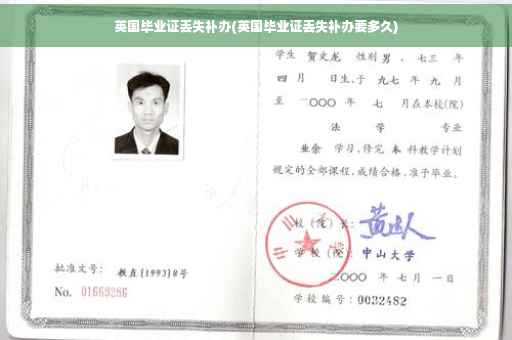 英国毕业证丢失补办(英国毕业证丢失补办要多久)
学生 贺文龙 性别 男 、七三 年
四 月 日生,于 九七 年 九 月
至 二〇〇〇 年 七 月在本校(院)
法 学 专业
业余 学习,修完 本 科教学计划
规定的全部课程,成绩合格,准予毕业。
校(院)长:
学校(院): 中山大学
二〇〇〇 年 七 月 一 日
批准文号: 教直(1993)8号
No. 01669286
学校编号: 0032482